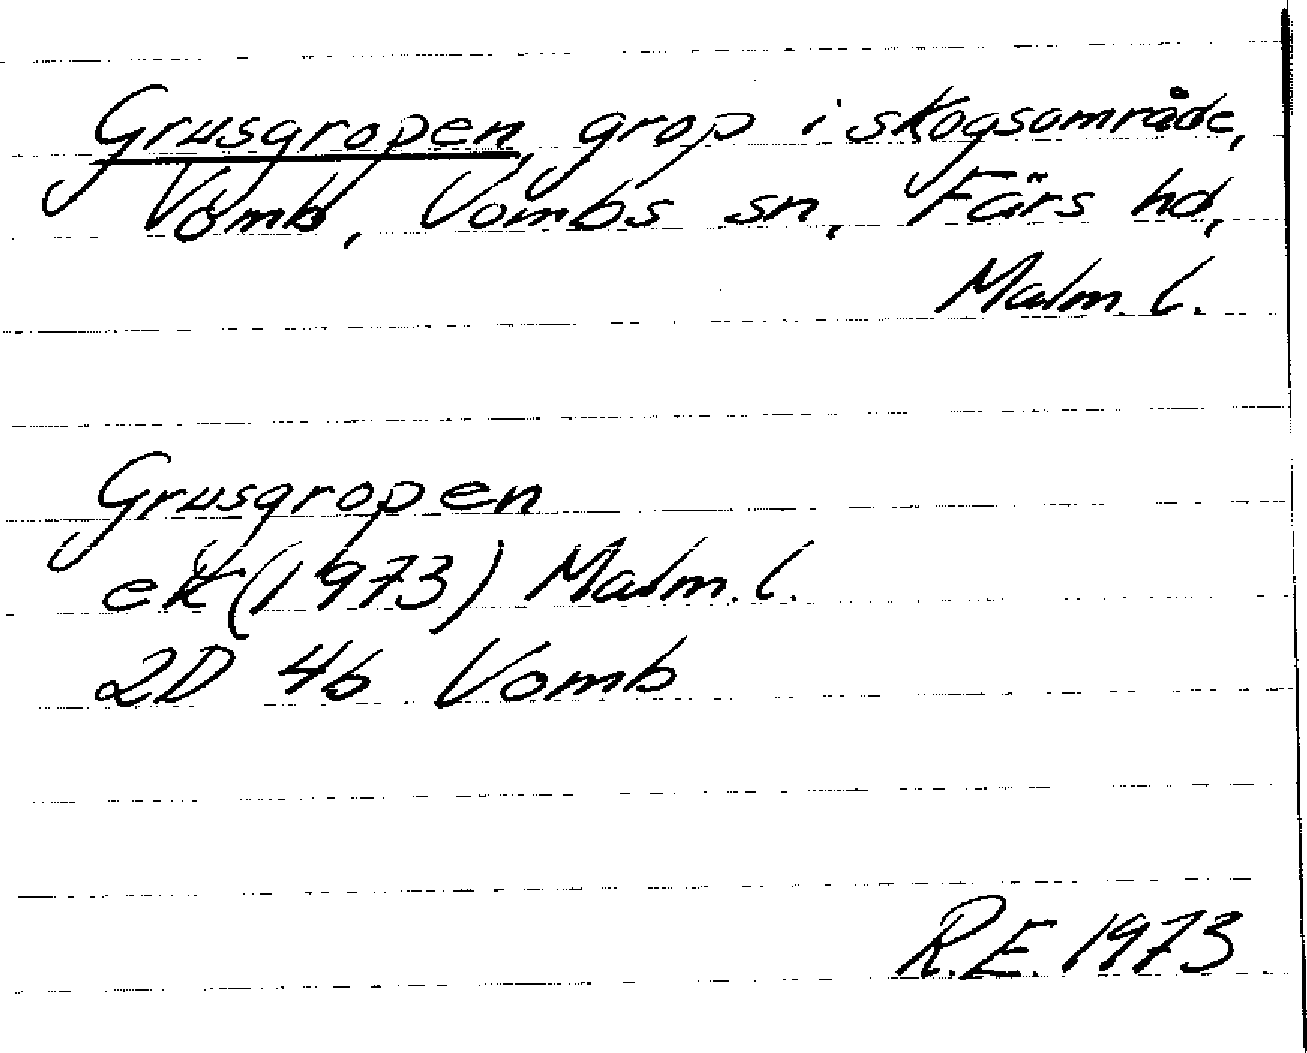 Grusgropen, grop i skogsområde,
Vomb, Vombs sn, Färs hd,
Malm. l.
Grusgropen
ek (1973) Malm. l.
2D 4b Vomb
R.E. 1973